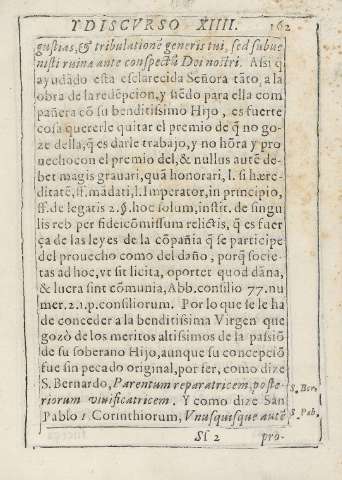 Y DISCVRSO XIIII. 162
gustias, & tribulationē generis tui, sed subue
nisti ruinæ ante conspectū Dei nostri. Assi q̄
ayudādo esta esclarecida Señora tāto, a la
obra de la redēpcion, y siēdo para ella com
pañera cō su benditissimo Hijo, es fuerte
cosa quererle quitar el premio de q̄ no go-
ze della, q̄ es darle trabajo, y no hōra y pro
uecho con el premio del, & nullus autē de-
bet magis grauari, quā honorari, l. si hære-
ditatē, ff. mādati, l. Imperator, in principio,
ff. de legatis 2. §. hoc solum, instit. de singu
lis reb per fideicōmissum relictis, q̄ es fuer
ça de las leyes de la cōpañia q̄ se participe
del prouecho como del daño, porq̄ socie-
tas ad hoc, vt sit licita, oportet quod dāna,
& lucra sint cōmunia, Abb. consilio 77. nu
mer. 2. 1. p. consiliorum. Por lo que se le ha
de conceder a la benditissima Virgen que
gozò de los meritos altissimos de la passiō
de su soberano Hijo, aunque su concepciō
fue sin pecado original, por ser, como dize
S. Bernardo, Parentum reparatricem, poste-
riorum viuificatricem. Y como dize San
S. Ber.
Pablo 1 Corinthiorum, Vnusquisque autē
S. Pab.
Sf 2 pro-